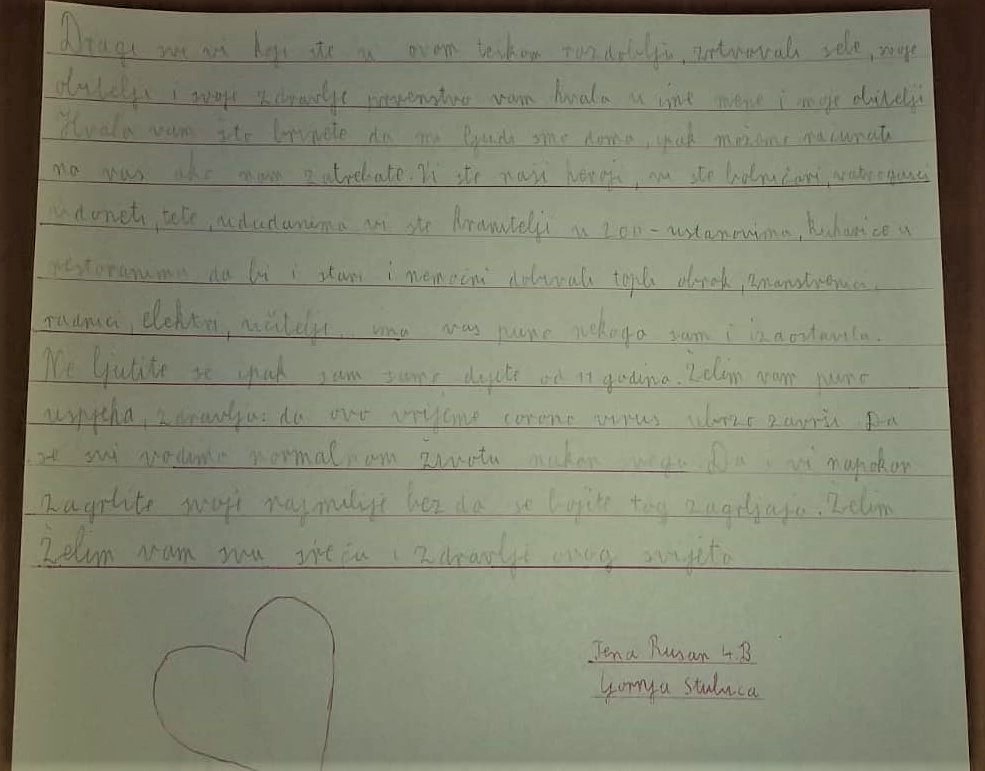 Dragi svi vi koji ste u ovom teškom razdoblju, žrtvovali sebe, svoje
obitelji i svoje zdravlje prvenstvo vam hvala u ime mene i moje obitelji
Hvala vam što brinete da mi ljudi smo doma, ipak možemo računati
na vas ako nam zatrebate. Vi ste naši heroji, vi ste bolničari, vatrogasci
tete, vi ste hranitelji u zoo-ustanovima, kuharice u
restoranima da bi i stari i nemoćni dobivali topli obrok, znanstvenici,
radnici, elektri, učitelji... ima vas puno nekoga sam i izaostavila.
Ne ljutite se ipak sam samo dijete od 11 godina. Želim vam puno
uspjeha, zdravlja: da ovo vrijeme corona virus ubrzo završi. Da
se svi vratimo normalnom životu nakon svega. Da i vi napokon
zagrlite svoje najmilije bez da se bojite tog zagrljaja. Želim
Želim vam svu sreću i zdravlje ovog svijeta
Jena Rusan 4.B
Gornja Stubica